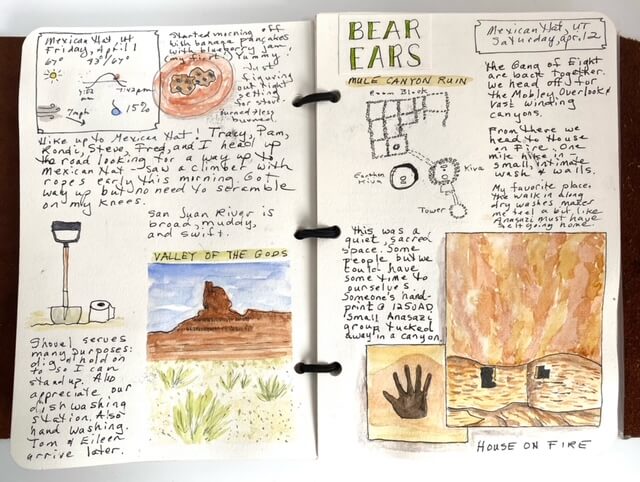 Mexican Hat, UT
Friday, April 1
67°
93°/67°
7:02
am
7:42pm
7mph
15%
Started morning off
with banana pancakes
with blueberry jam,
(my first) Yummy,
Just
figuring
out right
setting
for stove
turned + less
burned.
Hike up to Mexican Hat! Tracy, Pam,
Rondi, Steve, Fred, and I head up
the road looking for a way up to
Mexican Hat - saw a climber with
ropes early this morning. Got
way up but do need to scramble
on my knees.
San Juan River is
broad, muddy,
and swift.
VALLEY OF THE GODS
Shovel serves
many purposes:
dig & hold on
to so I can
stand up. Also
appreciate our
dish washing
station. Also
hand washing.
Tom & Eileen
arrive later.
BEAR
EARS
MULE CANYON RUIN
Room Block
Earthen
Kiva
Kiva
Tower
This was a
quiet, sacred
space. Some
people but we
could have
some time to
ourselves.
Someone's hand-
print @ 1250AD.
Small Anasazi
group tucked
away in a canyon.
Mexican Hat, UT
Saturday, Apr. 12
The Gang of Eight
are back together.
We head off for
the Mobley Overlook &
vast winding
canyons.
From there we
head to House
on Fire. One
mile hike in a
small, intimate
wash & walls.
My favorite place.
The walk in along
dry washes makes
me feel a bit like
Anasazi must have
felt going home.
HOUSE ON FIRE